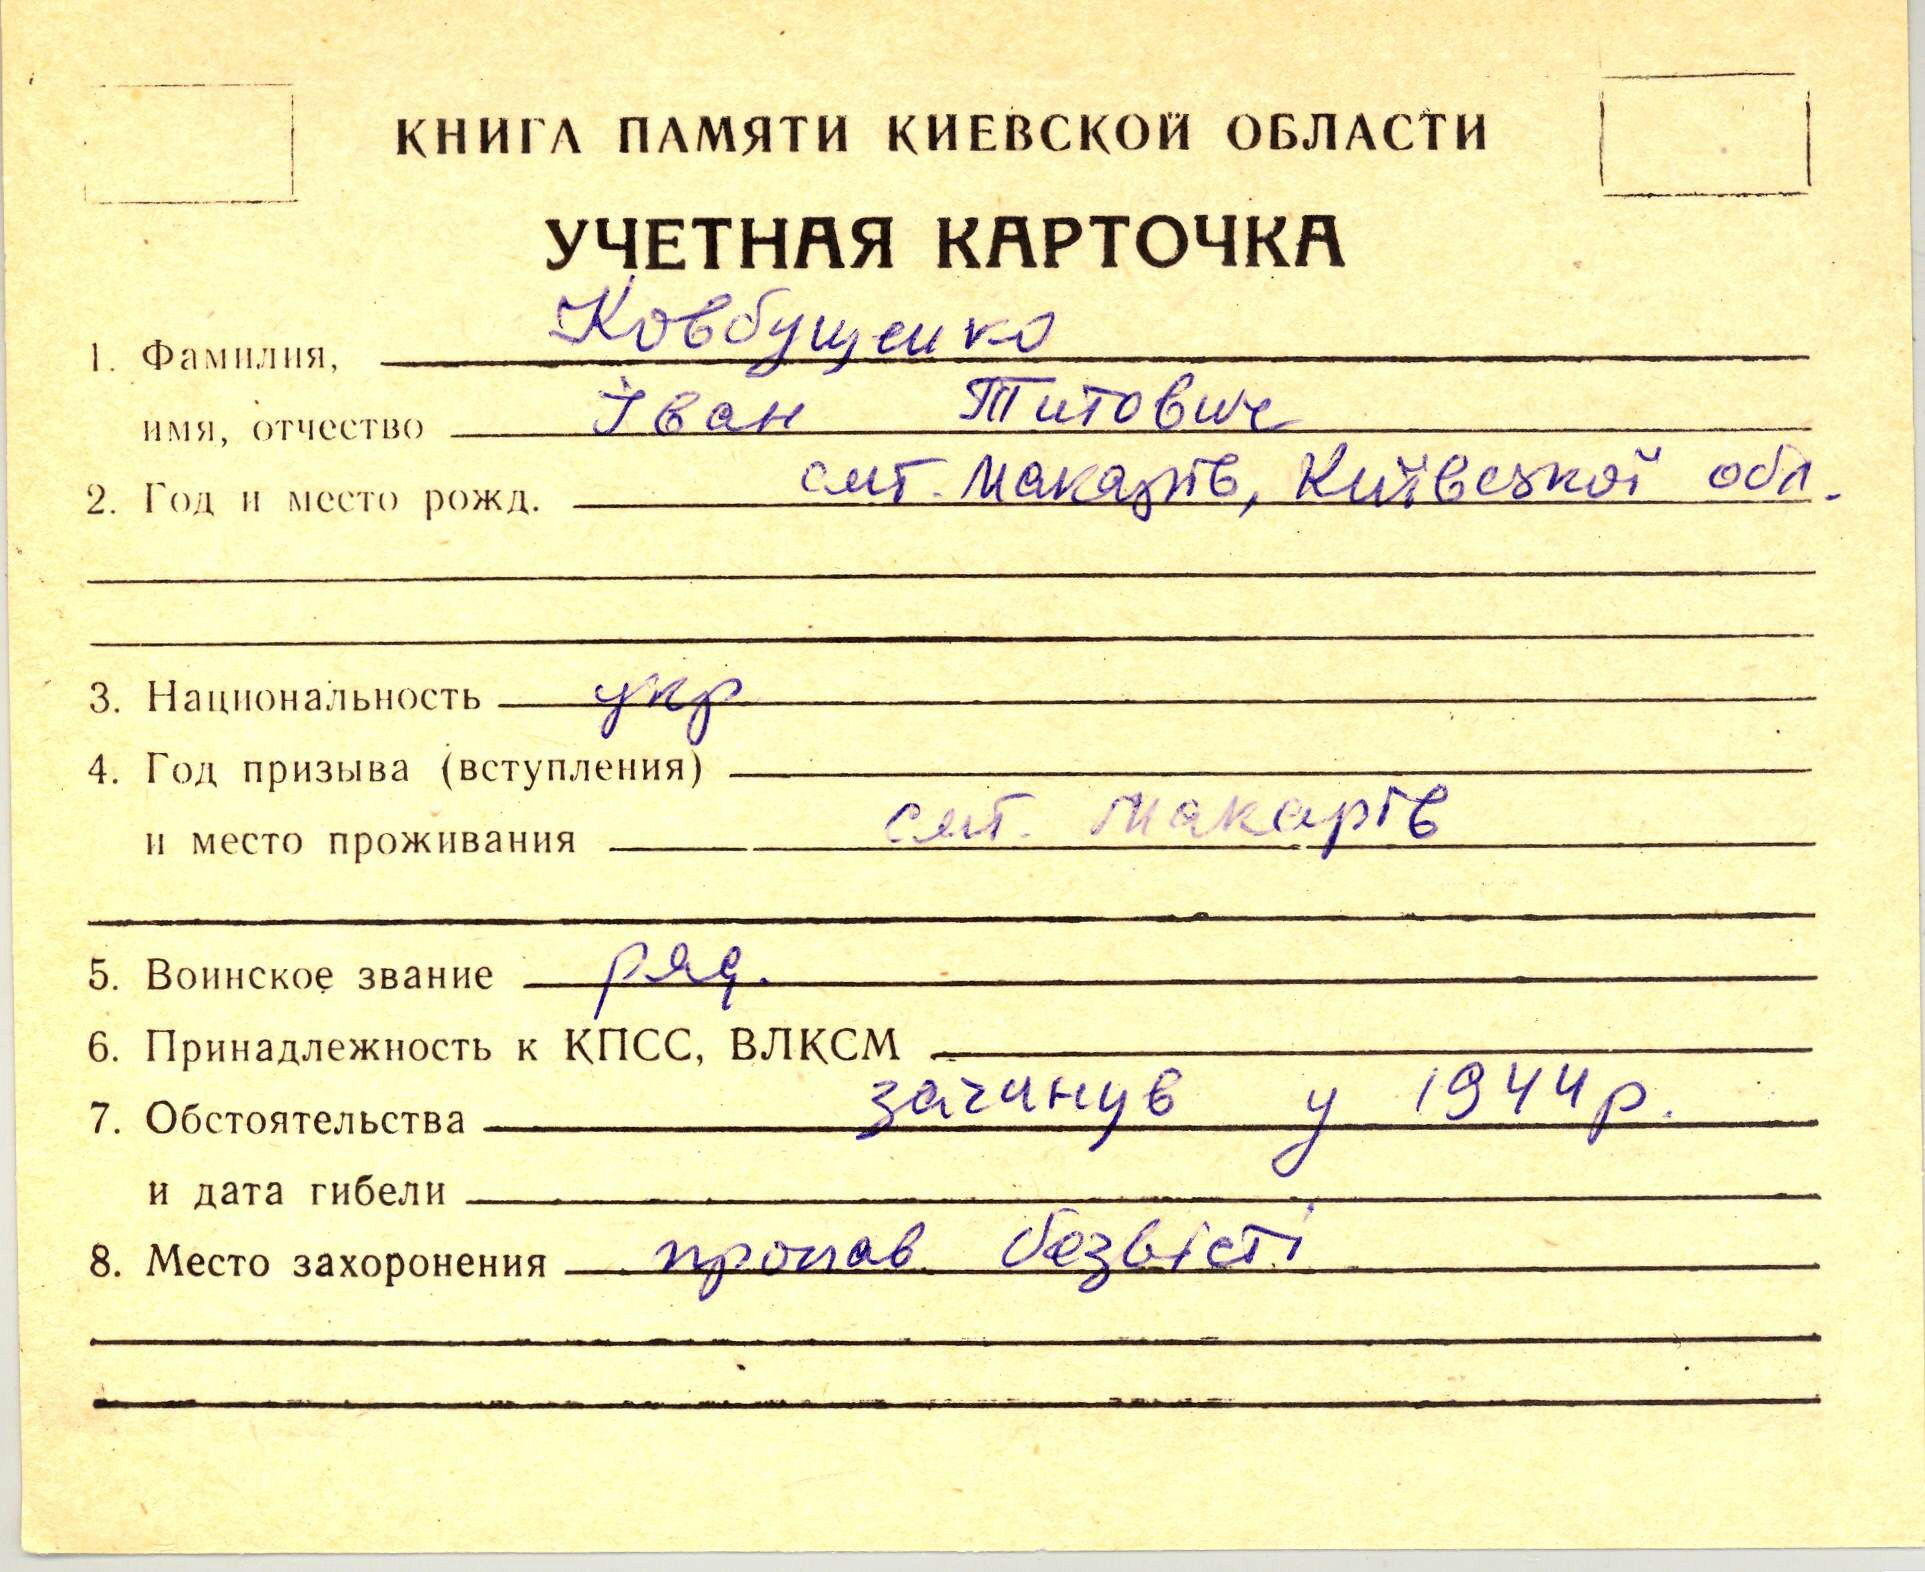 КНИГА ПАМЯТИ КИЕВСКОЙ ОБЛАСТИ
УЧЕТНАЯ КАРТОЧКА
1. Фамилия, Ковбущенко
имя, отчество Іван Титович
2. Год и место рожд. смт. Макарів, Київської обл.
3. Национальность укр
4. Год призыва (вступления)
и место проживания смт. Макарів
5. Воинское звание ряд.
6. Принадлежность к КПСС, ВЛКСМ
7. Обстоятельства загинув у 1944 р.
и дата гибели
8. Место захоронения пропав безвісті